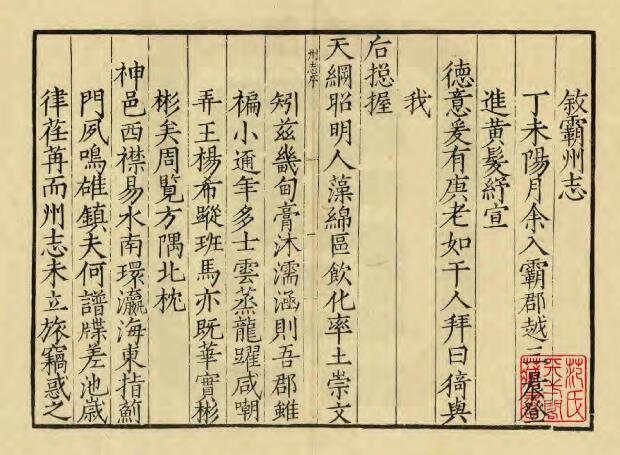 敘霸州志
丁未陽月余入霸郡越三晨登
進黃髮紓宣
德意爰有庚老如干人拜曰猗與
我
后揔握
天綱昭明人藻綿區飲化率土崇文
州志序
矧茲畿甸膏沐濡涵則吾郡雖
褊小通年多士雲蒸龍躍咸嘲
弄王楊希蹤班馬亦既華實彬
彬矣周覽方隅北枕
神邑西襟易水南環瀛海東指薊
門夙鳴雄鎮夫何譜牒差池歲
律荏苒而州志未立旅竊惑之
范氏
天一閣